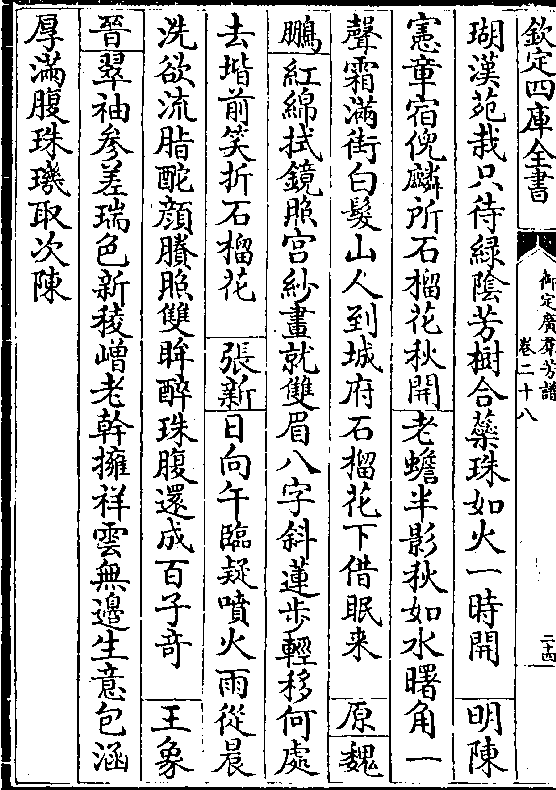 欽定四庫全書
御定廣羣芳譜
卷二十八
二十四
瑚漢苑栽只待緑陰芳樹合蘂珠如火一時開　明陳
憲章宿倪麟所石榴花秋開老蟾半影秋如水曙角一
聲霜滿街白髮山人到城府石榴花下借眠来　原魏
鵬紅綿拭鏡照宫紗畫就雙眉八字斜蓮步輕移何處
去堦前笑折石榴花　張新日向午臨疑噴火雨從晨
洗欲流脂酡顔賸照雙眸醉珠腹還成百子竒　王象
晉翠袖參差瑞色新稜嶒老幹擁祥雲無邊生意包涵
厚滿腹珠璣取次陳